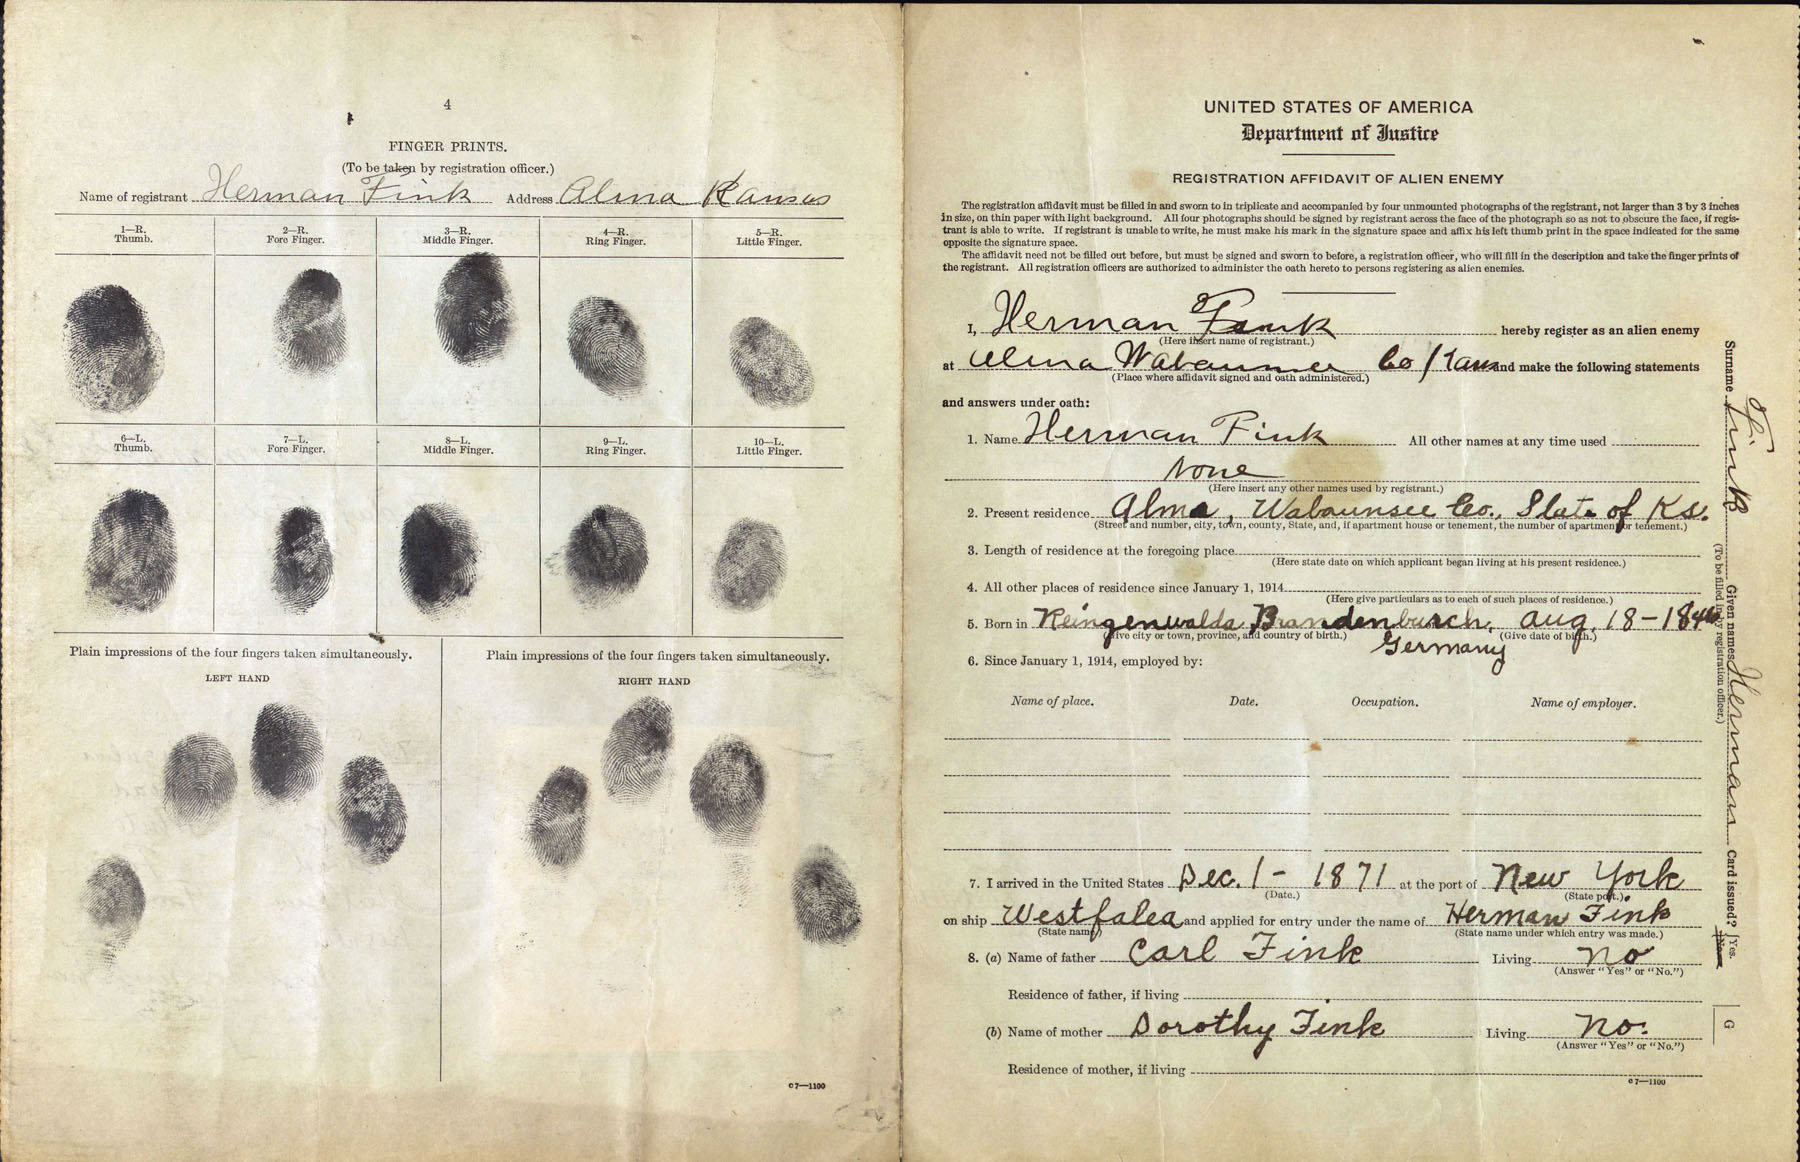 4
FINGER PRINTS.
(To be taken by registration officer.)
Name of registrant Herman Fink Address Alma Kansas
1—R. Thumb.
2—R. Fore Finger.
3—R. Middle Finger.
4—R. Ring Finger.
5—R. Little Finger.
6—L. Thumb.
7—L. Fore Finger.
8—L. Middle Finger.
9—L. Ring Finger.
10—L. Little Finger.
Plain impressions of the four fingers taken simultaneously.
LEFT HAND
Plain impressions of the four fingers taken simultaneously.
RIGHT HAND
C 7—1100
UNITED STATES OF AMERICA
Department of Justice
REGISTRATION AFFIDAVIT OF ALIEN ENEMY
The registration affidavit must be filled in and sworn to in triplicate and accompanied by four unmounted photographs of the registrant, not larger than 3 by 3 inches
in size, on thin paper with light background. All four photographs should be signed by registrant across the face of the photograph so as not to obscure the face, if regis-
trant is able to write. If registrant is unable to write, he must make his mark in the signature space and affix his left thumb print in the space indicated for the same
opposite the signature space.
The affidavit need not be filled out before, but must be signed and sworn to before, a registration officer, who will fill in the description and take the finger prints of
the registrant. All registration officers are authorized to administer the oath hereto to persons registering as alien enemies.
I, Herman Fink hereby register as an alien enemy
(Here insert name of registrant.)
at Alma Wabaunsee Co Kans and make the following statements
(Place where affidavit signed and oath administered.)
and answers under oath:
1. Name Herman Fink All other names at any time used
None
(Here insert any other names used by registrant.)
2. Present residence Alma, Wabaunsee Co., State of Ks.
(Street and number, city, town, county, State, and, if apartment house or tenement, the number of apartment or tenement.)
3. Length of residence at the foregoing place
(Here state date on which applicant began living at his present residence.)
4. All other places of residence since January 1, 1914
(Here give particulars as to each of such places of residence.)
5. Born in Reingenwalda Brandenburch, Aug. 18-
(Give city or town, province, and country of birth.) (Give date of birth.)
Germany
6. Since January 1, 1914, employed by:
Name of place. Date. Occupation. Name of employer.
7. I arrived in the United States Dec. 1 - 1871 at the port of New York
(Date.) (State port.)
on ship Westfalea and applied for entry under the name of Herman Fink
(State name) (State name under which entry was made.)
8. (a) Name of father Carl Fink Living No
(Answer "Yes" or "No.")
Residence of father, if living
(b) Name of mother Dorothy Fink Living No.
(Answer "Yes" or "No.")
Residence of mother, if living
C 7—1100
Surname Fink Given names Herman Card issued? Yes. No.
(To be filled in by registration officer.)
G